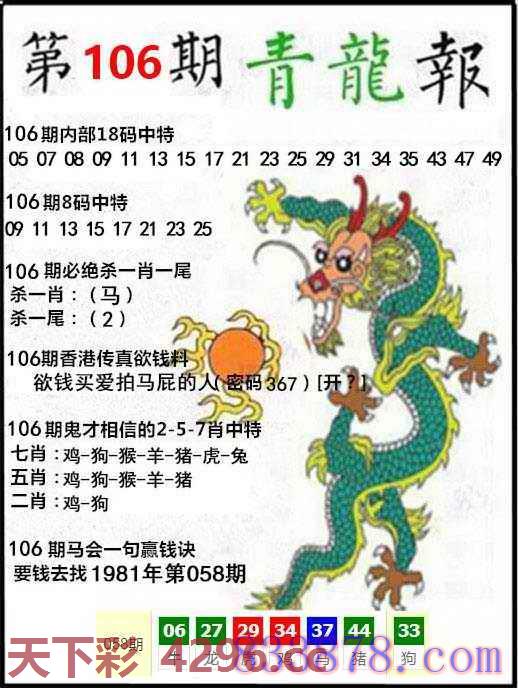 第106期 青龍報
106期内部18码中特
05 07 08 09 11 13 15 17 21 23 25 29 31 34 35 43 47 49
106期8码中特
09 11 13 15 17 21 23 25
106期必绝杀一肖一尾
杀一肖：（马）
杀一尾：（2）
106期香港传真欲钱料
欲钱买爱拍马屁的人(密码367)[开？]
106期鬼才相信的2-5-7肖中特
七肖：鸡-狗-猴-羊-猪-虎-兔
五肖：鸡-狗-猴-羊-猪
二肖：鸡-狗
106期马会一句赢钱诀
要钱去找1981年第058期
058期 06 27 29 34 37 44 33
牛 龙 虎 鸡 马 猪 狗
天下彩 4296.cc